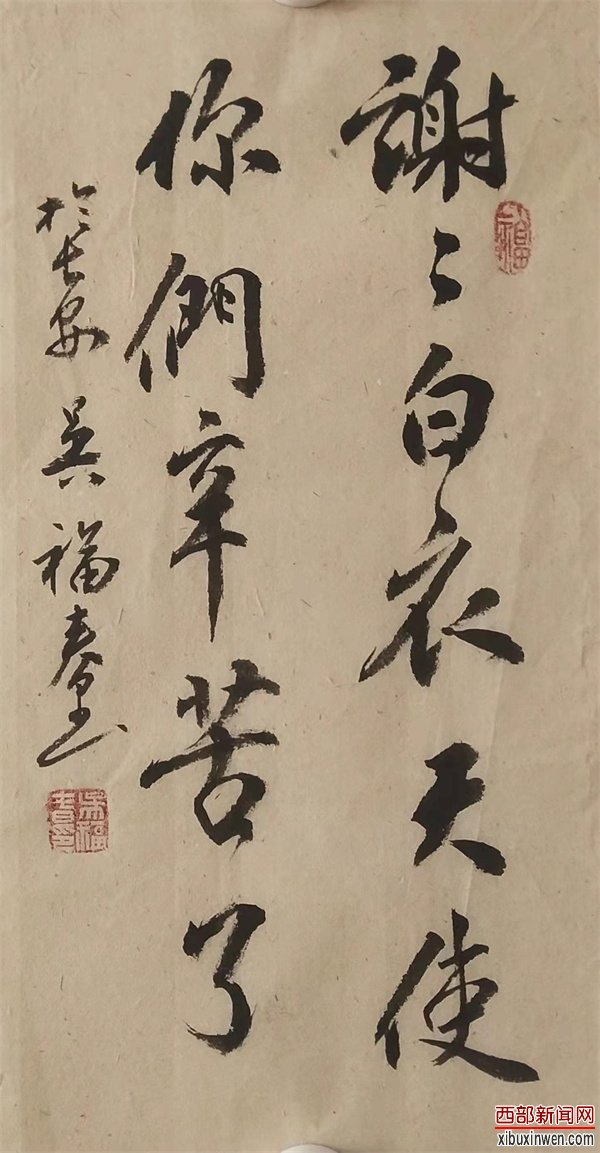 謝〻白衣天使
你們辛苦了
於長安 吴福春
西部新闻网
xibuxinwen.com